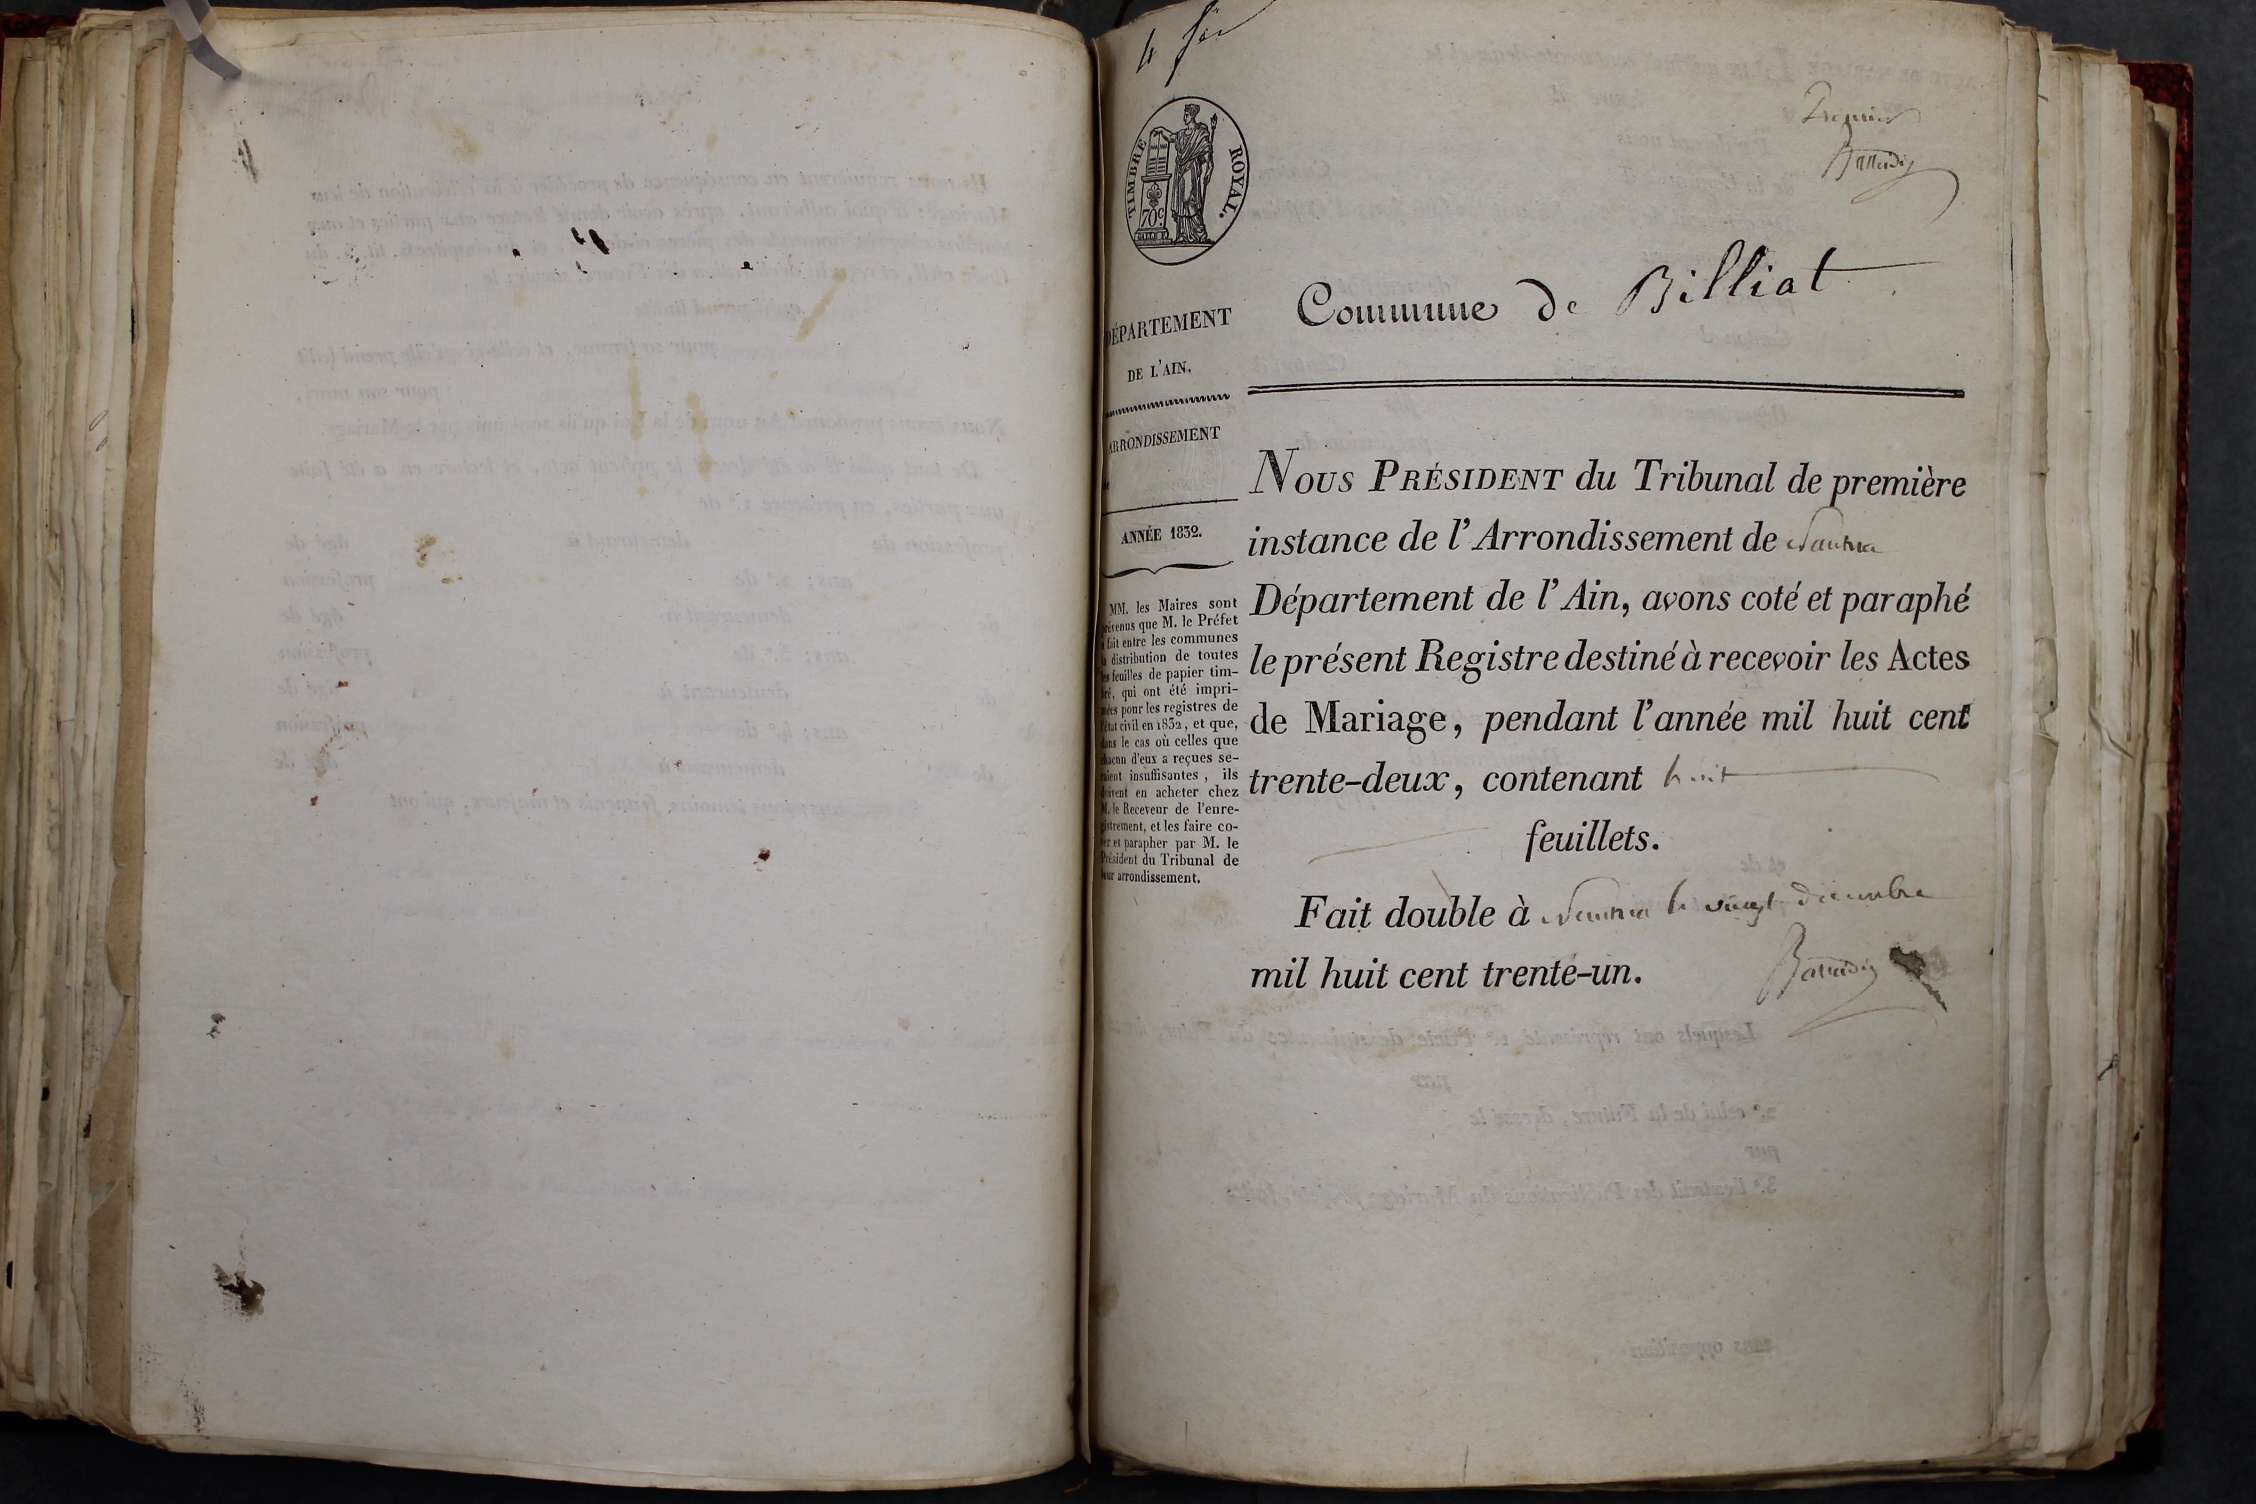 4 f
Premier
TIMBRE ROYAL.
70c
DÉPARTEMENT
DE L'AIN.
ARRONDISSEMENT
de
ANNÉE 1832.
MM. les Maires sont
prévenus que M. le Préfet
a fait entre les communes
la distribution de toutes
les feuilles de papier tim-
bré, qui ont été impri-
mées pour les registres de
l'état civil en 1832, et que,
dans le cas où celles que
chacun d'eux a reçues se-
raient insuffisantes, ils
doivent en acheter chez
M. le Receveur de l'enre-
gistrement, et les faire co-
ter et parapher par M. le
Président du Tribunal de
leur arrondissement.
Commune de Billiat
NOUS PRÉSIDENT du Tribunal de première
instance de l'Arrondissement de Nantua
Département de l'Ain, avons coté et paraphé
le présent Registre destiné à recevoir les Actes
de Mariage, pendant l'année mil huit cent
trente-deux, contenant huit
feuillets.
Fait double à Nantua le vingt décembre
mil huit cent trente-un.